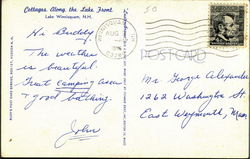 Cottages Along the Lake Front
Lake Winnisquam, N.H.
Hi Buddy.
The weather
is beautiful.
Great camping area
+ good bathing.
John
AUG
POSTCARD
Mr. George Alexander
1262 Washington St
East Weymouth, Mass.
50